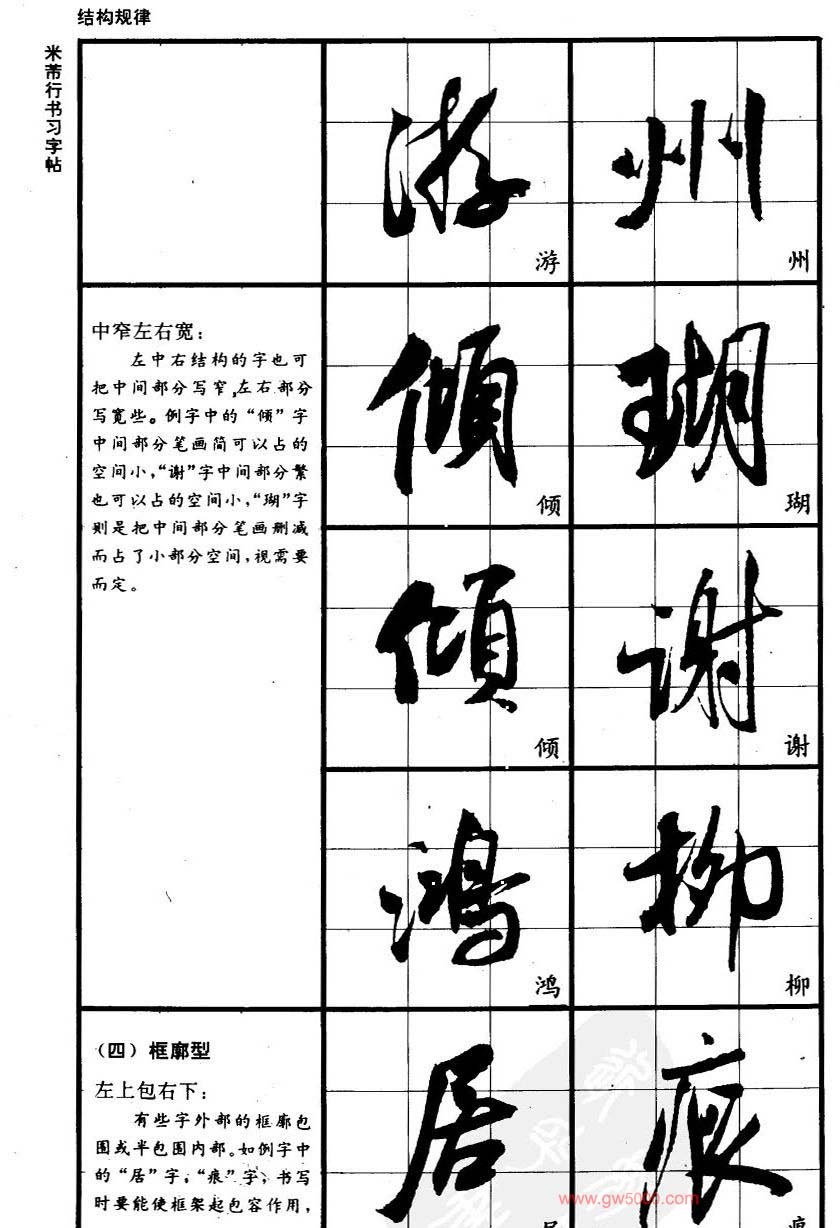 结构规律
米芾行书习字帖
州
州
游
游
中窄左右宽：
左中右结构的字也可
把中间部分写窄，左右部分
写宽些。例字中的“倾”字
中间部分笔画简可以占的
空间小，“谢”字中间部分繁
也可以占的空间小，“瑚”字
则是把中间部分笔画删减
而占了小部分空间，视需要
而定。
瑚
瑚
傾
倾
谢
谢
傾
倾
柳
柳
鴻
鸿
（四）框廓型
左上包右下：
有些字外部的框廓包
围或半包围内部。如例字中
的“居”字，“痕”字，书写
时要能使框架起包容作用，
痕
居
www.gw5000.com